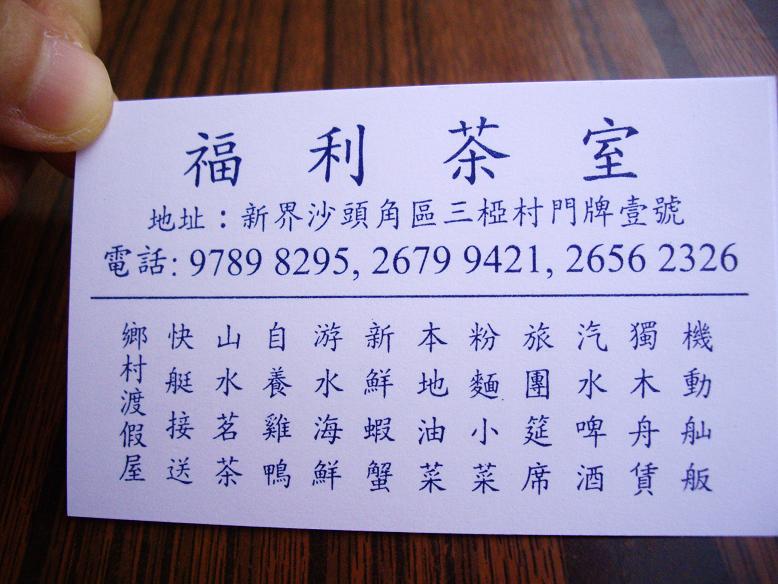 福利茶室
地址：新界沙頭角區三椏村門牌壹號
電話: 9789 8295, 2679 9421, 2656 2326
機動舢舨
獨木舟賃
汽水啤酒
旅團筵席
粉麵小菜
本地油菜
新鮮蝦蟹
游水海鮮
自養雞鴨
山水茗茶
快艇接送
鄉村渡假屋